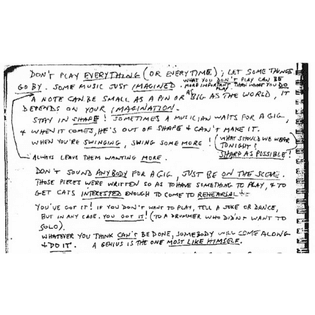 DON'T PLAY EVERYTHING (OR EVERYTIME); LET SOME THINGS
GO BY. SOME MUSIC JUST IMAGINED. WHAT YOU DON'T PLAY CAN BE
MORE IMPORTANT THAN WHAT YOU DO
A NOTE CAN BE SMALL AS A PIN OR AS BIG AS THE WORLD, IT
DEPENDS ON YOUR IMAGINATION.
STAY IN SHAPE! SOMETIMES A MUSICIAN WAITS FOR A GIG,
& WHEN IT COMES, HE'S OUT OF SHAPE & CAN'T MAKE IT.
WHEN YOU'RE SWINGING, SWING SOME MORE!
WHAT SHOULD WE WEAR
TONIGHT?
SHARP AS POSSIBLE!
ALWAYS LEAVE THEM WANTING MORE.
DON'T SOUND ANYBODY FOR A GIG, JUST BE ON THE SCENE.
THOSE PIECES WERE WRITTEN SO AS TO HAVE SOMETHING TO PLAY, & TO
GET CATS INTERESTED ENOUGH TO COME TO REHEARSAL
YOU'VE GOT IT! IF YOU DON'T WANT TO PLAY, TELL A JOKE OR DANCE,
BUT IN ANY CASE, YOU GOT IT! (TO A DRUMMER WHO DIDN'T WANT TO
SOLO).
WHATEVER YOU THINK CAN'T BE DONE, SOMEBODY WILL COME ALONG
& DO IT. A GENIUS IS THE ONE MOST LIKE HIMSELF.